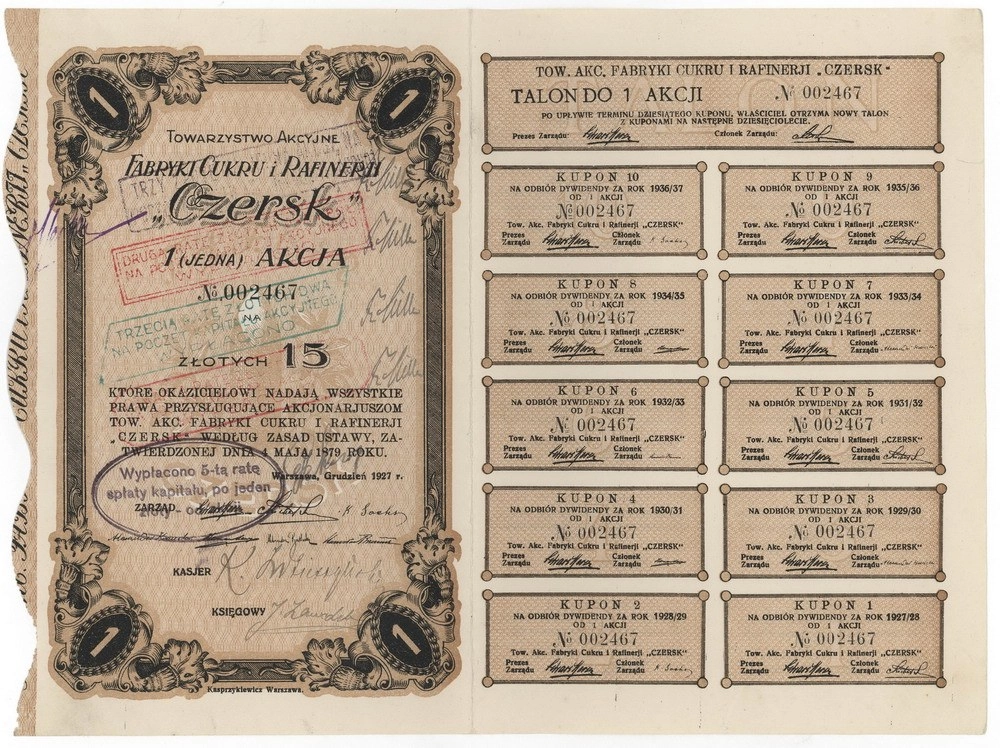 1
1
TOWARZYSTWO AKCYJNE
FABRYKI CUKRU I RAFINERJI
„Czersk"
1 (JEDNA) AKCJA
№ 002467
NA
ZŁOTYCH 15
KTÓRE OKAZICIELOWI NADAJĄ WSZYSTKIE
PRAWA PRZYSŁUGUJĄCE AKCJONARJUSZOM
TOW. AKC. FABRYKI CUKRU I RAFINERJI
„CZERSK" WEDŁUG ZASAD USTAWY, ZA-
TWIERDZONEJ DNIA 4 MAJA 1879 ROKU.
Warszawa, Grudzień 1927 r.
Wypłacono 5-tą ratę
spłaty kapitału, po jeden
złoty
ZARZĄD
KASJER
KSIĘGOWY
1
1
Kasprzykiewicz Warszawa.
TRZY
DRUGA
NA PO
TRZECIĄ RATĘ
KAPITAŁU AKCYJNEGO
NA POCZ
TOW. AKC. FABRYKI CUKRU I RAFINERJI „CZERSK"
TALON DO 1 AKCJI № 002467
PO UPŁYWIE TERMINU DZIESIĄTEGO KUPONU, WŁAŚCICIEL OTRZYMA NOWY TALON
Z KUPONAMI NA NASTĘPNE DZIESIĘCIOLECIE.
Prezes Zarządu: Członek Zarządu:
KUPON 10
NA ODBIÓR DYWIDENDY ZA ROK 1936/37
OD 1 AKCJI
№ 002467
Tow. Akc. Fabryki Cukru i Rafinerji „CZERSK"
Prezes Członek
Zarządu Zarządu
KUPON 9
NA ODBIÓR DYWIDENDY ZA ROK 1935/36
OD 1 AKCJI
№ 002467
Tow. Akc. Fabryki Cukru i Rafinerji „CZERSK"
Prezes Członek
Zarządu Zarządu
KUPON 8
NA ODBIÓR DYWIDENDY ZA ROK 1934/35
OD 1 AKCJI
№ 002467
Tow. Akc. Fabryki Cukru i Rafinerji „CZERSK"
Prezes Członek
Zarządu Zarządu
KUPON 7
NA ODBIÓR DYWIDENDY ZA ROK 1933/34
OD 1 AKCJI
№ 002467
Tow. Akc. Fabryki Cukru i Rafinerji „CZERSK"
Prezes Członek
Zarządu Zarządu
KUPON 6
NA ODBIÓR DYWIDENDY ZA ROK 1932/33
OD 1 AKCJI
№ 002467
Tow. Akc. Fabryki Cukru i Rafinerji „CZERSK"
Prezes Członek
Zarządu Zarządu
KUPON 5
NA ODBIÓR DYWIDENDY ZA ROK 1931/32
OD 1 AKCJI
№ 002467
Tow. Akc. Fabryki Cukru i Rafinerji „CZERSK"
Prezes Członek
Zarządu Zarządu
KUPON 4
NA ODBIÓR DYWIDENDY ZA ROK 1930/31
OD 1 AKCJI
№ 002467
Tow. Akc. Fabryki Cukru i Rafinerji „CZERSK"
Prezes Członek
Zarządu Zarządu
KUPON 3
NA ODBIÓR DYWIDENDY ZA ROK 1929/30
OD 1 AKCJI
№ 002467
Tow. Akc. Fabryki Cukru i Rafinerji „CZERSK"
Prezes Członek
Zarządu Zarządu
KUPON 2
NA ODBIÓR DYWIDENDY ZA ROK 1928/29
OD 1 AKCJI
№ 002467
Tow. Akc. Fabryki Cukru i Rafinerji „CZERSK"
Prezes Członek
Zarządu Zarządu
KUPON 1
NA ODBIÓR DYWIDENDY ZA ROK 1927/28
OD 1 AKCJI
№ 002467
Tow. Akc. Fabryki Cukru i Rafinerji „CZERSK"
Prezes Członek
Zarządu Zarządu